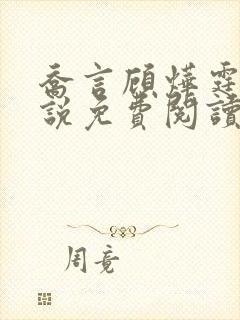 喬言顧燁霆
說免費閱讀
周竟